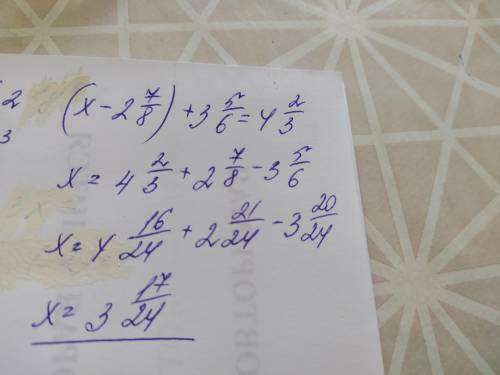 (x - 2 7/8) + 3 5/6 = 4 2/3
x = 4 2/3 + 2 7/8 - 3 5/6
x = 4 16/24 + 2 21/24 - 3 20/24
x = 3 17/24
2
3